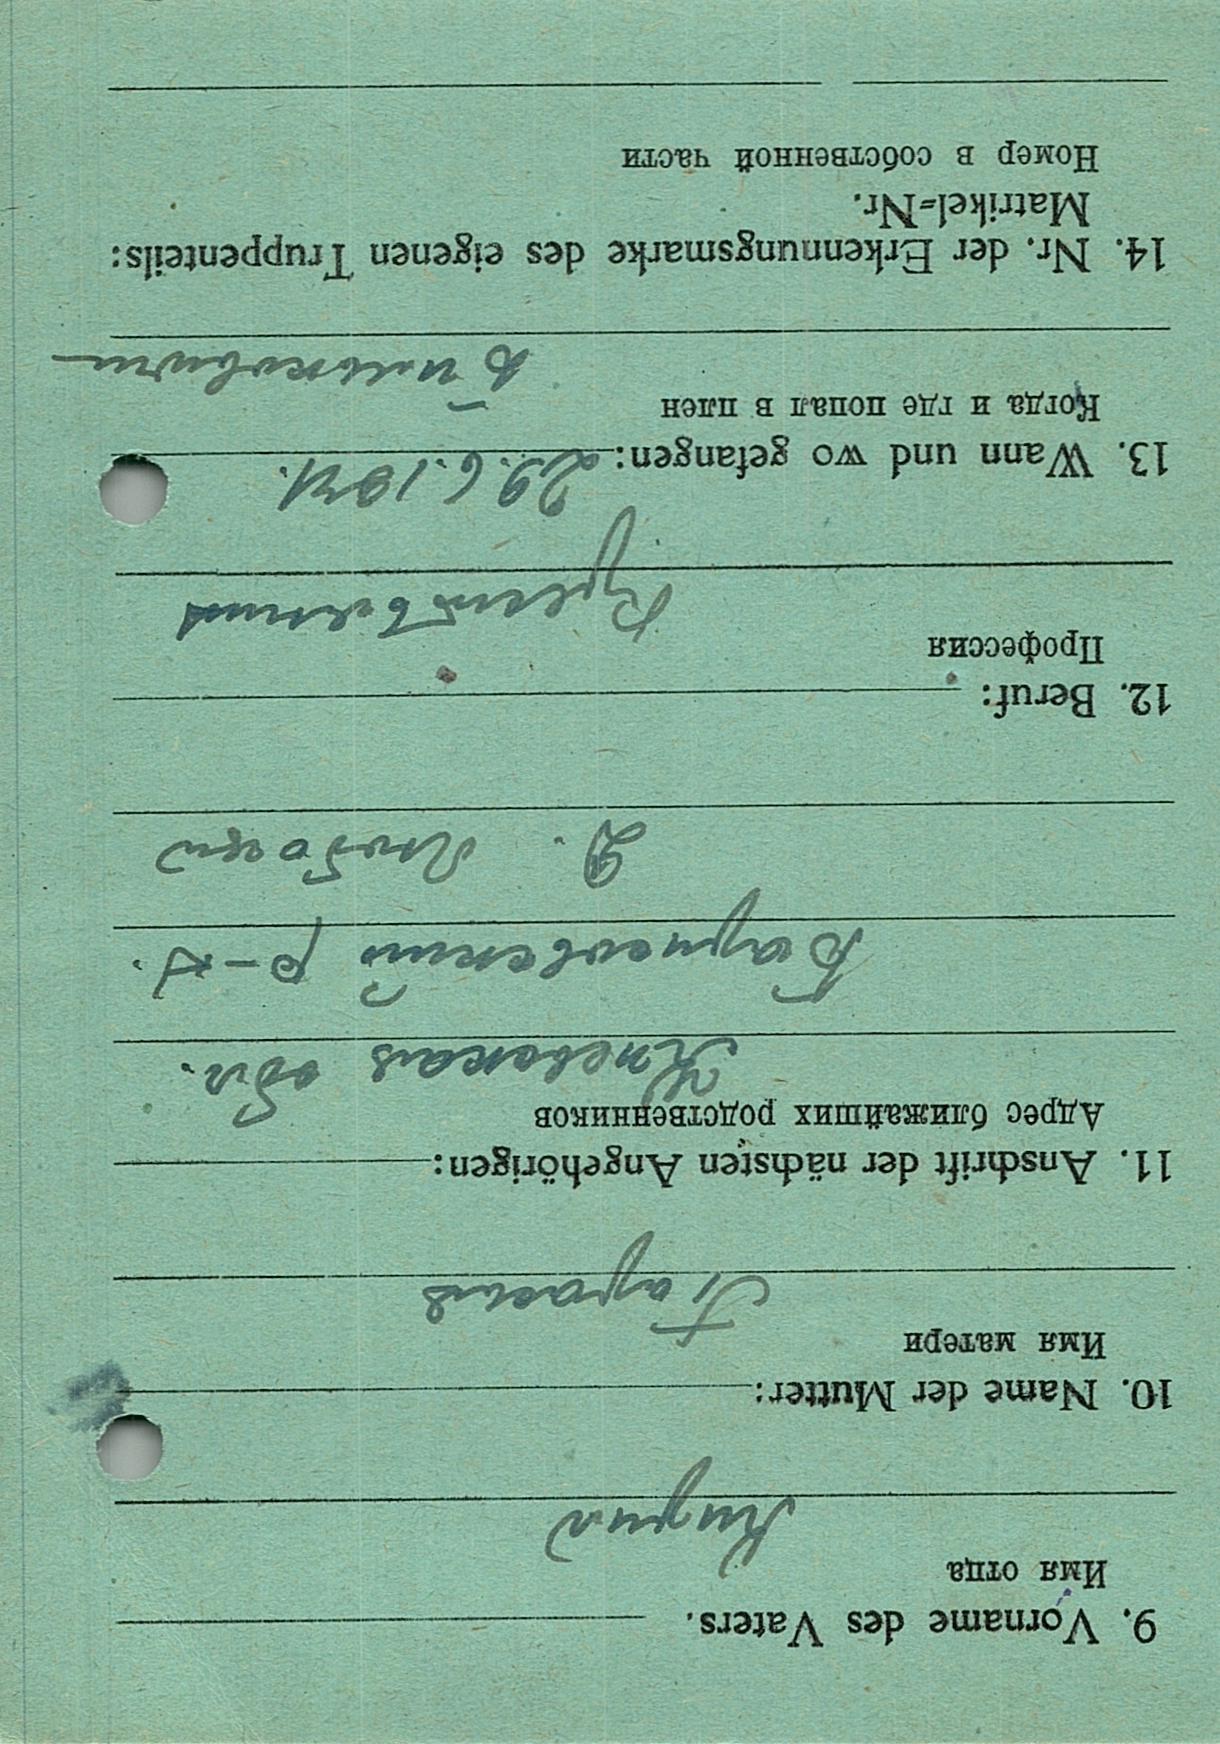 9. Vorname des Vaters.
Имя отца
Кирил
10. Name der Mutter:
Имя матери
Параска
11. Anschrift der nächsten Angehörigen:
Адрес ближайших родственников
Киевская обл.
р-н.
Д.
12. Beruf:
Профессия
13. Wann und wo gefangen: 29.6.1941.
Когда и где попал в плен
14. Nr. der Erkennungsmarke des eigenen Truppenteils:
Matrikel=Nr.
Номер в собственной части